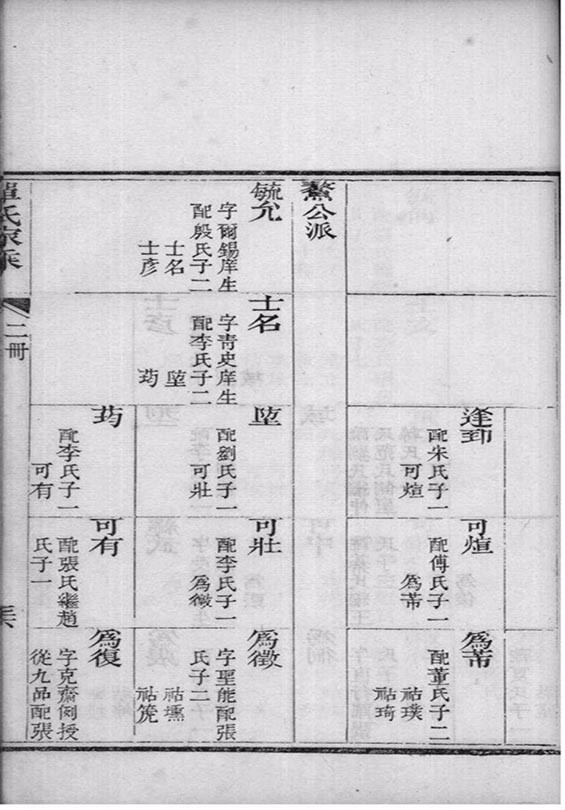 鰲公派
毓允
字爾錫庠生
配殷氏子二
士名
士彥
士名
字青史庠生
配李氏子二
逢
配朱氏子一
可煊
配劉氏子一
可壯
配李氏子一
可有
可煊
配傅氏子一
爲芾
可壯
配李氏子一
爲徵
可有
配張氏繼趙
氏子一
爲芾
配董氏子二
祜璞
祜琦
爲徵
字聖能配張
氏子二
祜壎
祜箎
爲復
字克齋例授
從九品配張
氏家乘
二冊